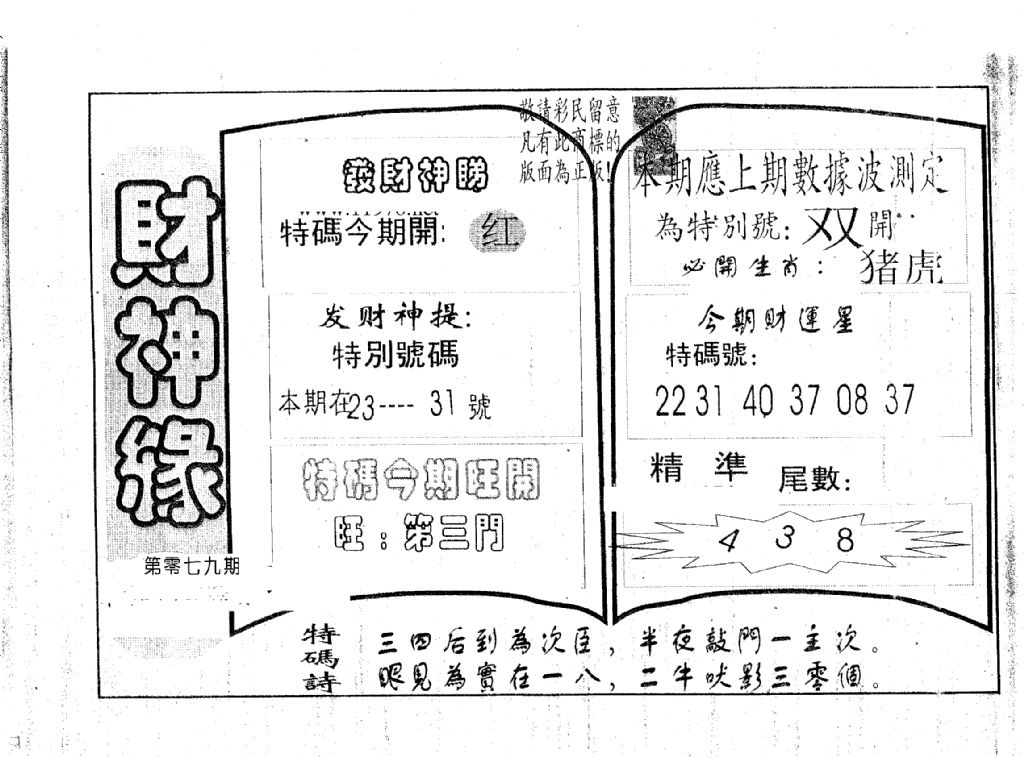 財神緣
第零七九期
敬請彩民留意
凡有此商標的
版面為正版!
發財神睇
特碼今期開: 红
发财神提:
特別號碼
本期在23---- 31 號
特碼今期旺開
旺:第三門
本期應上期數據波測定
為特別號: 双 開
必開生肖: 猪虎
今期財運星
特碼號:
22 31 40 37 08 37
精 準 尾數:
4 3 8
特碼詩
三四后到為次臣,半夜敲門一主次。
眼見為實在一八,二牛吠影三零個。